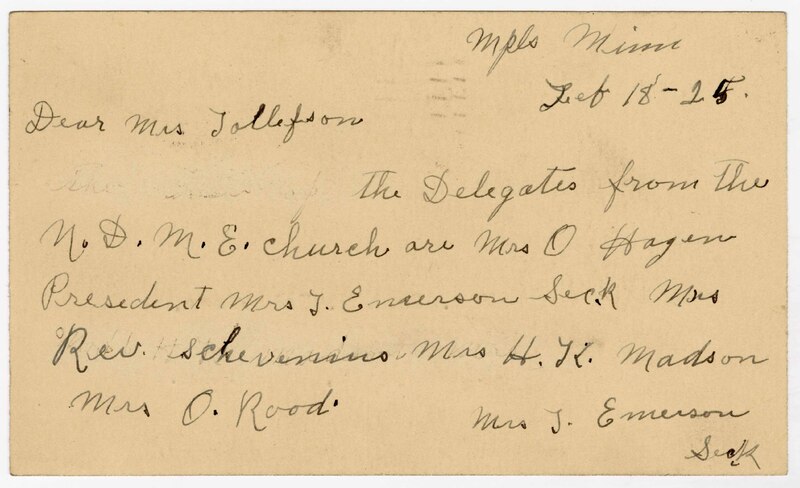 Mpls Minn
Feb 18-25.
Dear Mrs Tollefson
the Delegates from the
N. D. M. E. church are Mrs O Hagen
President Mrs T. Emerson Seck Mrs
Rev. Schevenius Mrs H. K. Madson
Mrs O. Rood.
Mrs T. Emerson
Seck